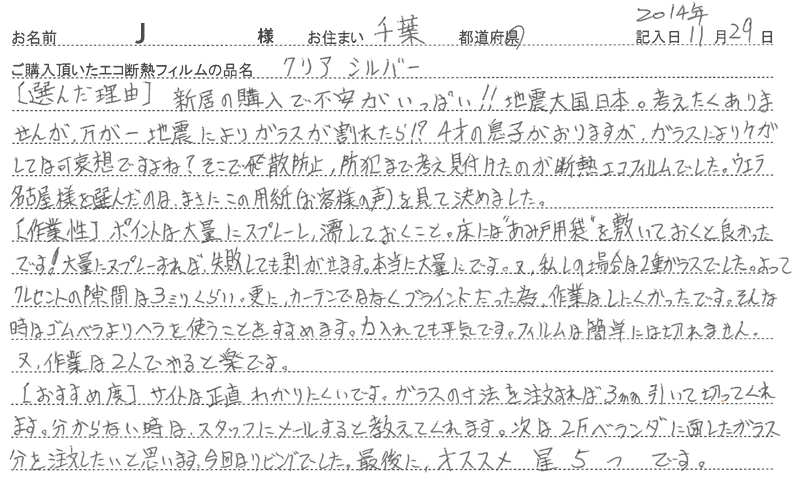 2014年
お名前 J 様 お住まい 千葉 都道府県 記入日 11月29日
ご購入頂いたエコ断熱フィルムの品名 クリア シルバー
[選んだ理由] 新居の購入で不安がいっぱい!! 地震大国日本。考えたくありま
せんが、万が一地震によりガラスが割れたら!? 4才の息子がおりますが、ガラスによりケガ
しては可哀想ですよね?そこで飛散防止、防犯まで考え見付けたのが断熱エコフィルムでした。ウエラ
名古屋様を選んだのは、まさにこの用紙(お客様の声)を見て決めました。
[作業性] ポイントは大量にスプレーし、濡しておくこと。床には"あみ戸用袋"を敷いておくと良かった
です!大量にスプレーすれば、失敗しても剥がせます。本当に大量にです。又、私しの場合は2重ガラスでした。よって
クレセントの隙間は3ミリくらい。更に、カーテンではなくブラインドだった為、作業はしにくかったです。そんな
時はゴムベラよりヘラを使うことをすすめます。力入れても平気です。フィルムは簡単には切れません。
又、作業は2人でやると楽です。
[おすすめ度] サイトは正直わかりにくいです。ガラスの寸法を注文すれば3mm引いて切ってくれ
ます。分からない時は、スタッフにメールすると教えてくれます。次は2Fベランダに面したガラス
分を注文したいと思います、今回はリビングでした。最後に、オススメ 星 5つ です。